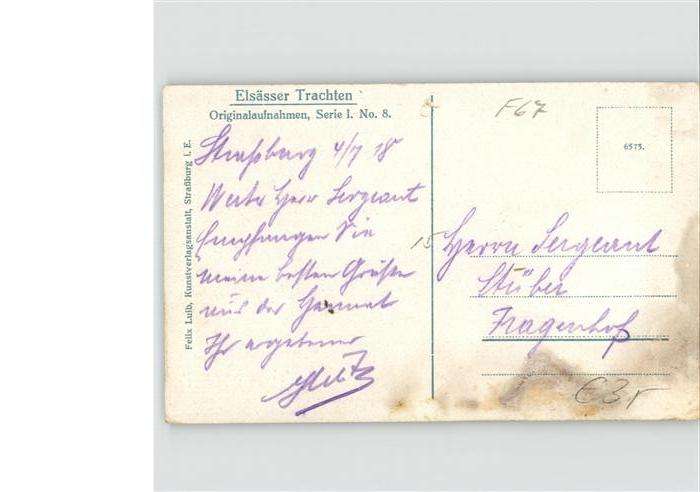 Elsässer Trachten
Originalaufnahmen, Serie I. No. 8.
Felix Luib, Kunstverlagsanstalt, Straßburg i. E.
Straßburg 4/7 18
Werter Herr Sergeant
Empfangen Sie
meine besten Grüße
aus der Heimat
Ihr ergebener
F67
6575.
15
Herrn Sergeant
Stüber
Hagenhof